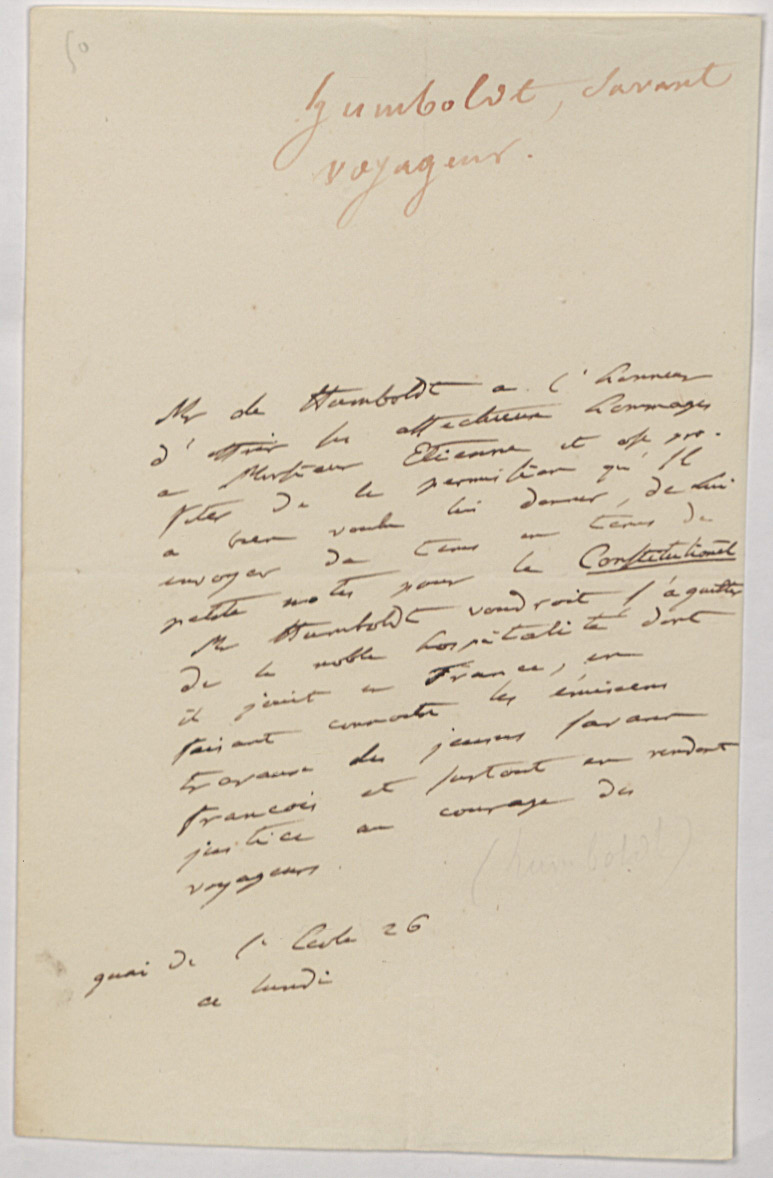 50
humboldt, savant
voyageur.
Mr de Humboldt a l'honneur
d'offrir les affectueux hommages
a Monsieur Etienne et ose pro-
fiter de la permission qu'Il
a bien voulu lui donner, de Lui
envoyer de tems en tems de
petite notes pour le Constitutionel
Mr Humboldt voudroit s'aquitter
de la noble hospitalité dont
il jouit en France, en
faisant connoitre les
travaux des jeunes savans
francois et surtout en rendant
justice au courage des
voyageurs.
(humboldt)
quai de l'Ecole 26
ce lundi